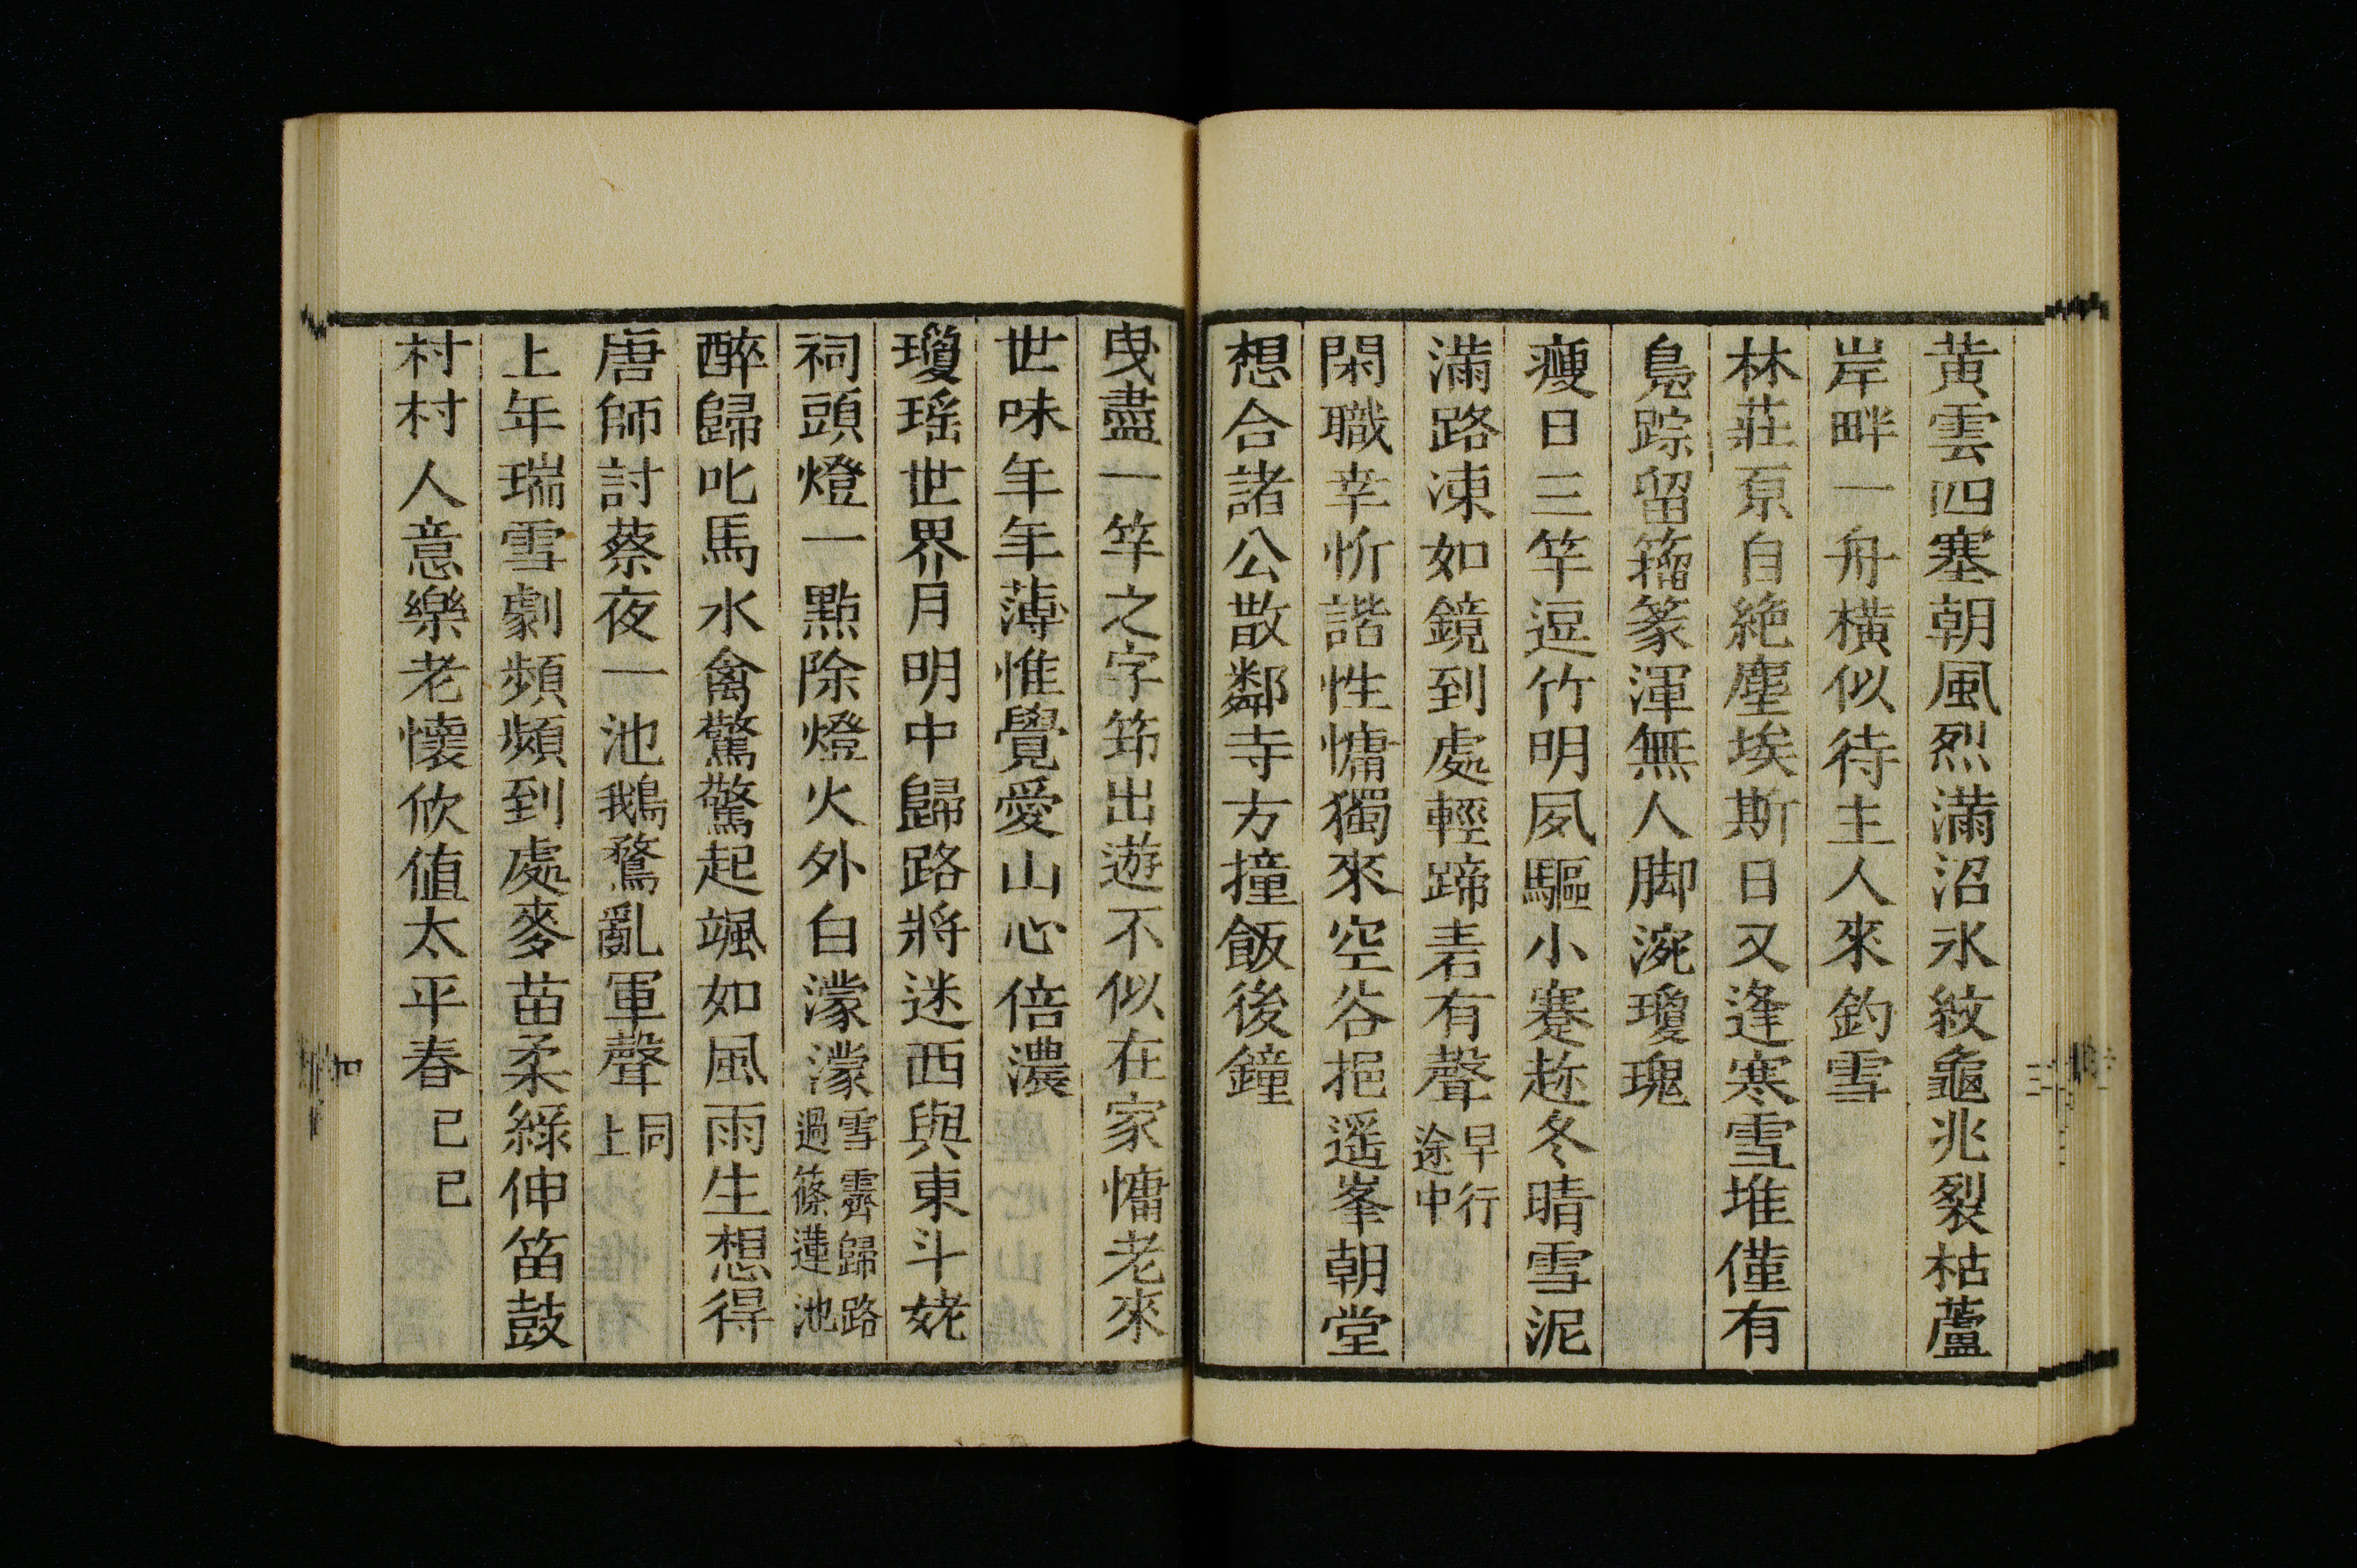 黃雲四塞朝風烈滿沼氷紋龜兆裂枯蘆
岸畔一舟橫似待主人來釣雪
林莊亰自絶塵埃斯日又逢寒雪堆僅有
鳧踪留籀篆渾無人脚涴瓊瑰
瘦日三竿逗竹明夙驅小蹇趂冬晴雪泥
滿路凍如鏡到處輕蹄砉有聲早行途中
閑職幸忻諧性慵獨來空谷挹遥峯朝堂
想合諸公散鄰寺方撞飯後鐘
曳盡一竿之字筇出遊不似在家慵老來
世味年年薄惟覺愛山心倍濃
瓊瑶世界月明中歸路將迷西與東斗姥
祠頭燈一點除燈火外白濛濛雪霽歸路過篠蓮池
醉歸叱馬水禽驚驚起颯如風雨生想得
唐師討蔡夜一池鵝鶩亂軍聲同上
上年瑞雪劇頻頻到處麥苗柔綠伸笛鼓
村村人意樂老懷欣値太平春己巳